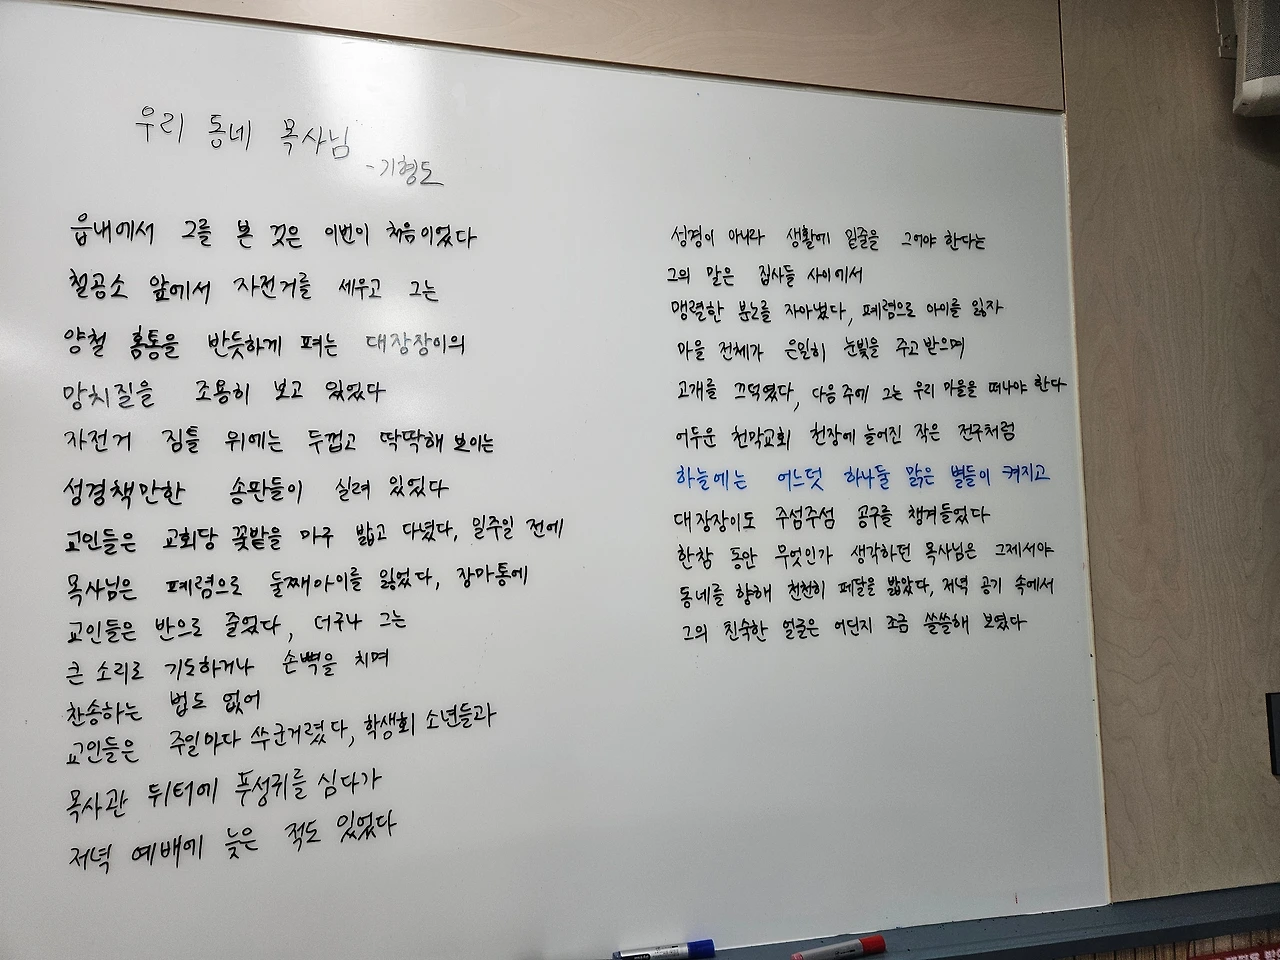 우리 동네 목사님
-기형도
읍내에서 그를 본 것은 이번이 처음이었다
철공소 앞에서 자전거를 세우고 그는
양철 홈통을 반듯하게 펴는 대장장이의
망치질을 조용히 보고 있었다
자전거 짐틀 위에는 두껍고 딱딱해 보이는
성경책만한 송판들이 실려 있었다
교인들은 교회당 꽃밭을 마구 밟고 다녔다, 일주일 전에
목사님은 폐렴으로 둘째아이를 잃었다, 장마통에
교인들은 반으로 줄었다, 더구나 그는
큰 소리로 기도하거나 손뼉을 치며
찬송하는 법도 없어
교인들은 주일마다 쑤군거렸다, 학생회 소년들과
목사관 뒤터에 푸성귀를 심다가
저녁 예배에 늦은 적도 있었다
성경이 아니라 생활에 밑줄을 그어야 한다는
그의 말은 집사들 사이에서
맹렬한 분노를 자아냈다, 폐렴으로 아이를 잃자
마을 전체가 은밀히 눈빛을 주고받으며
고개를 끄덕였다, 다음 주에 그는 우리 마을을 떠나야 한다
어두운 천막교회 천장에 늘어진 작은 전구처럼
하늘에는 어느덧 하나둘 맑은 별들이 켜지고
대장장이도 주섬주섬 공구를 챙겨들었다
한참 동안 무엇인가 생각하던 목사님은 그제서야
동네를 향해 천천히 페달을 밟았다, 저녁 공기 속에서
그의 친숙한 얼굴은 어딘지 조금 쓸쓸해 보였다